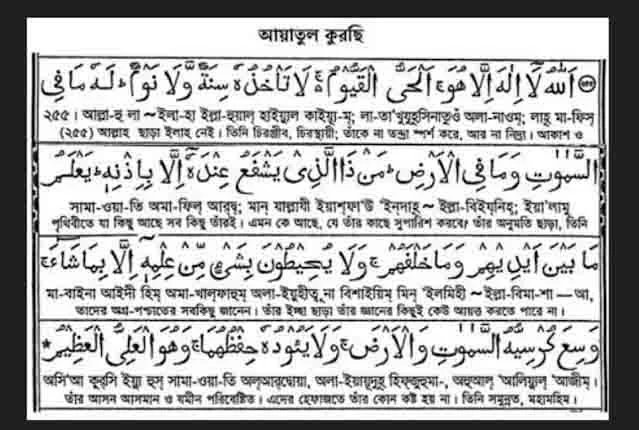 আয়াতুল কুরছি
اَللّٰهُ لَآ اِلٰهَ اِلَّا هُوَ ۚ اَلْحَىُّ الْقَيُّوْمُ ۚ لَا تَاْخُذُهٗ سِنَةٌ وَّلَا نَوْمٌ ؕ لَهٗ مَا فِى
২৫৫। আল্লা-হু লা ~ ইলা-হা ইল্লা-হুয়াল্ হাইয়্যুল কাইয়্যূ-ম্; লা-তা'খুযুহূসিনাতুওঁ অলা-নাওম্; লাহূ মা-ফিস্
(২৫৫) আল্লাহ্ ছাড়া ইলাহ নেই। তিনি চিরঞ্জীব, চিরস্থায়ী; তাঁকে না তন্দ্রা স্পর্শ করে, আর না নিদ্রা। আকাশ ও
السَّمٰوٰتِ وَمَا فِى الْاَرْضِ ؕ مَنْ ذَا الَّذِىْ يَشْفَعُ عِنْدَهٗٓ اِلَّا بِاِذْنِهٖ ؕ يَعْلَمُ
সামা-ওয়া-তি অমা-ফিল্ আরদ্ব্; মান্ যাল্লাযী ইয়াশ্ফা'উ 'ইন্দাহূ ~ ইল্লা-বিইয্নিহ্; ইয়া'লামু
পৃথিবীতে যা কিছু আছে সব কিছু তাঁরই। এমন কে আছে, যে তাঁর কাছে সুপারিশ করবে? তাঁর অনুমতি ছাড়া, তিনি
مَا بَيْنَ اَيْدِيْهِمْ وَمَا خَلْفَهُمْ ۚ وَلَا يُحِيْطُوْنَ بِشَىْءٍ مِّنْ عِلْمِهٖٓ اِلَّا بِمَا شَآءَ ۚ
মা-বাইনা আইদী হিম্ অমা-খাল্ফাহুম্ অলা-ইয়ুহীতূ না বিশাইয়িম্ মিন্ 'ইলমিহী ~ ইল্লা-বিমা-শা — আ,
তাদের অগ্র-পশ্চাতের সবকিছু জানেন। তাঁর ইচ্ছা ছাড়া তাঁর জ্ঞানের কিছুই কেউ আয়ত্ত করতে পারে না।
وَسِعَ كُرْسِيُّهُ السَّمٰوٰتِ وَالْاَرْضَ ۚ وَلَا يَئُوْدُهٗ حِفْظُهُمَا ۚ وَهُوَ الْعَلِىُّ الْعَظِيْمُ *
অসি'আ কুর্সি ইয়্যু হুস্ সামা-ওয়া-তি অল্আর্দ্বোয়া, অলা-ইয়ায়ূদুহূ হিফ্জুহুমা-, অহুঅল্ 'আলিয়্যুল্ 'আজীম্।
তাঁর আসন আসমান ও যমীন পরিবেষ্টিত। এদের হেফাজতে তাঁর কোন কষ্ট হয় না। তিনি সমুন্নত, মহামহিম।